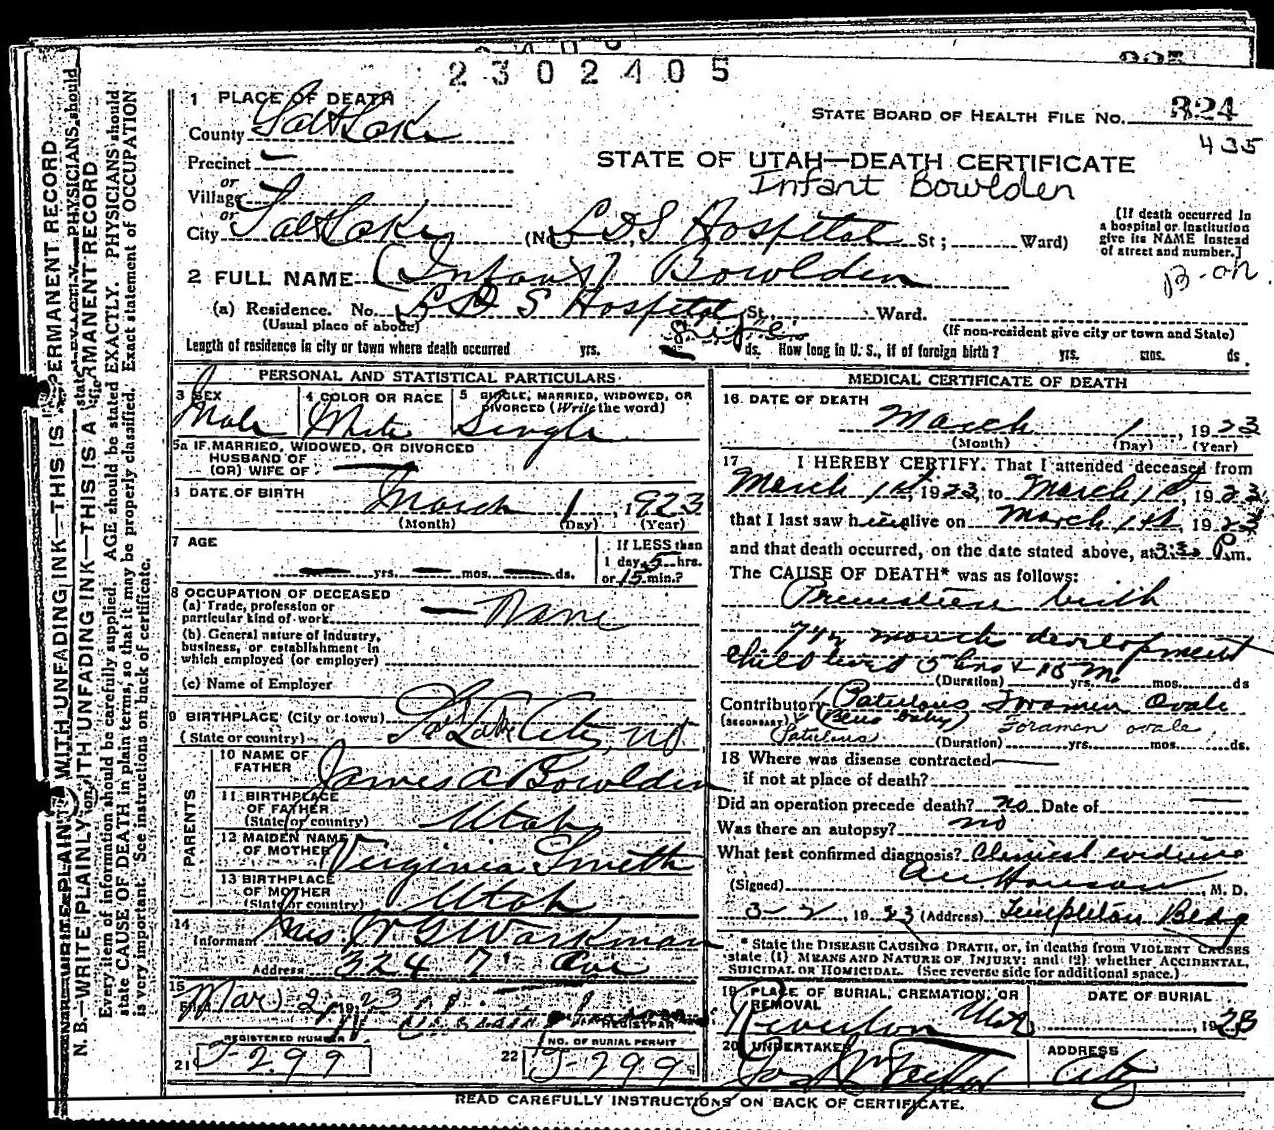 2302405
1 PLACE OF DEATH
County Salt Lake
STATE BOARD OF HEALTH FILE No. 324
435
Precinct —
or
Village
or
STATE OF UTAH—DEATH CERTIFICATE
Infant Bowlden
City Salt Lake (No. L D S Hospital St; Ward)
[If death occurred in
a hospital or institution
give its NAME instead
of street and number.]
2 FULL NAME (Infant) Bowlden
(a) Residence. No. L D S Hospital St. Ward.
(Usual place of abode)
(If non-resident give city or town and State)
Length of residence in city or town where death occurred yrs. ds. How long in U. S., if of foreign birth? yrs. mos. ds.
PERSONAL AND STATISTICAL PARTICULARS.
3 SEX
Male
4 COLOR OR RACE
White
5 SINGLE, MARRIED, WIDOWED, OR
DIVORCED (Write the word)
Single
5a IF MARRIED, WIDOWED, OR DIVORCED
HUSBAND OF
(OR) WIFE OF —
DATE OF BIRTH
March 1, 1923
(Month) (Day) (Year)
7 AGE
— yrs. — mos. — ds.
If LESS than
1 day 5 hrs.
or 15 min.?
8 OCCUPATION OF DECEASED
(a) Trade, profession or
particular kind of work — None
(b) General nature of industry,
business, or establishment in
which employed (or employer)
(c) Name of Employer
9 BIRTHPLACE (City or town)
(State or country) Salt Lake City,
PARENTS
10 NAME OF
FATHER James A Bowlden
11 BIRTHPLACE
OF FATHER
(State or country) Utah
12 MAIDEN NAME
OF MOTHER Virginia Smith
13 BIRTHPLACE
OF MOTHER
(State or country) Utah
14
Informant Mrs W G Workman
Address 324 7" Ave
15
Mar 2 23
REGISTRAR
REGISTERED NUMBER
21 J-299
NO. OF BURIAL PERMIT
22 J-299
MEDICAL CERTIFICATE OF DEATH
16 DATE OF DEATH
March 1, 1923
(Month) (Day) (Year)
17 I HEREBY CERTIFY. That I attended deceased from
March 1st, 1923, to March 1st, 1923
that I last saw him alive on March 1st, 1923
and that death occurred, on the date stated above, at 3:30 P.m.
The CAUSE OF DEATH* was as follows:
Premature birth
7 1/2 month development
child lived 5 hrs + 15 m
(Duration) yrs. mos. ds
Contributory Patulous Foramen Ovale
(SECONDARY) (Blue baby) Foramen ovale
Patulous (Duration) yrs. mos. ds.
18 Where was disease contracted —
if not at place of death?
Did an operation precede death? no Date of —
Was there an autopsy? no
What test confirmed diagnosis? Clinical evidence
(Signed) , M. D.
3-2, 1923 (Address) Templeton Bldg
* State the DISEASE CAUSING DEATH, or, in deaths from VIOLENT CAUSES
state (1) MEANS AND NATURE OF INJURY; and (2) whether ACCIDENTAL,
SUICIDAL OR HOMICIDAL. (See reverse side for additional space.)
19 PLACE OF BURIAL, CREMATION, OR
REMOVAL
Riverton Utah
DATE OF BURIAL
1923
20 UNDERTAKER
Jos Wm Taylor
ADDRESS
City
READ CAREFULLY INSTRUCTIONS ON BACK OF CERTIFICATE.
N. B.—WRITE PLAINLY WITH UNFADING INK—THIS IS A PERMANENT RECORD
Every item of information should be carefully supplied. AGE should be stated EXACTLY. PHYSICIANS should
state CAUSE OF DEATH in plain terms, so that it may be properly classified. Exact statement of OCCUPATION
is very important. See instructions on back of certificate.